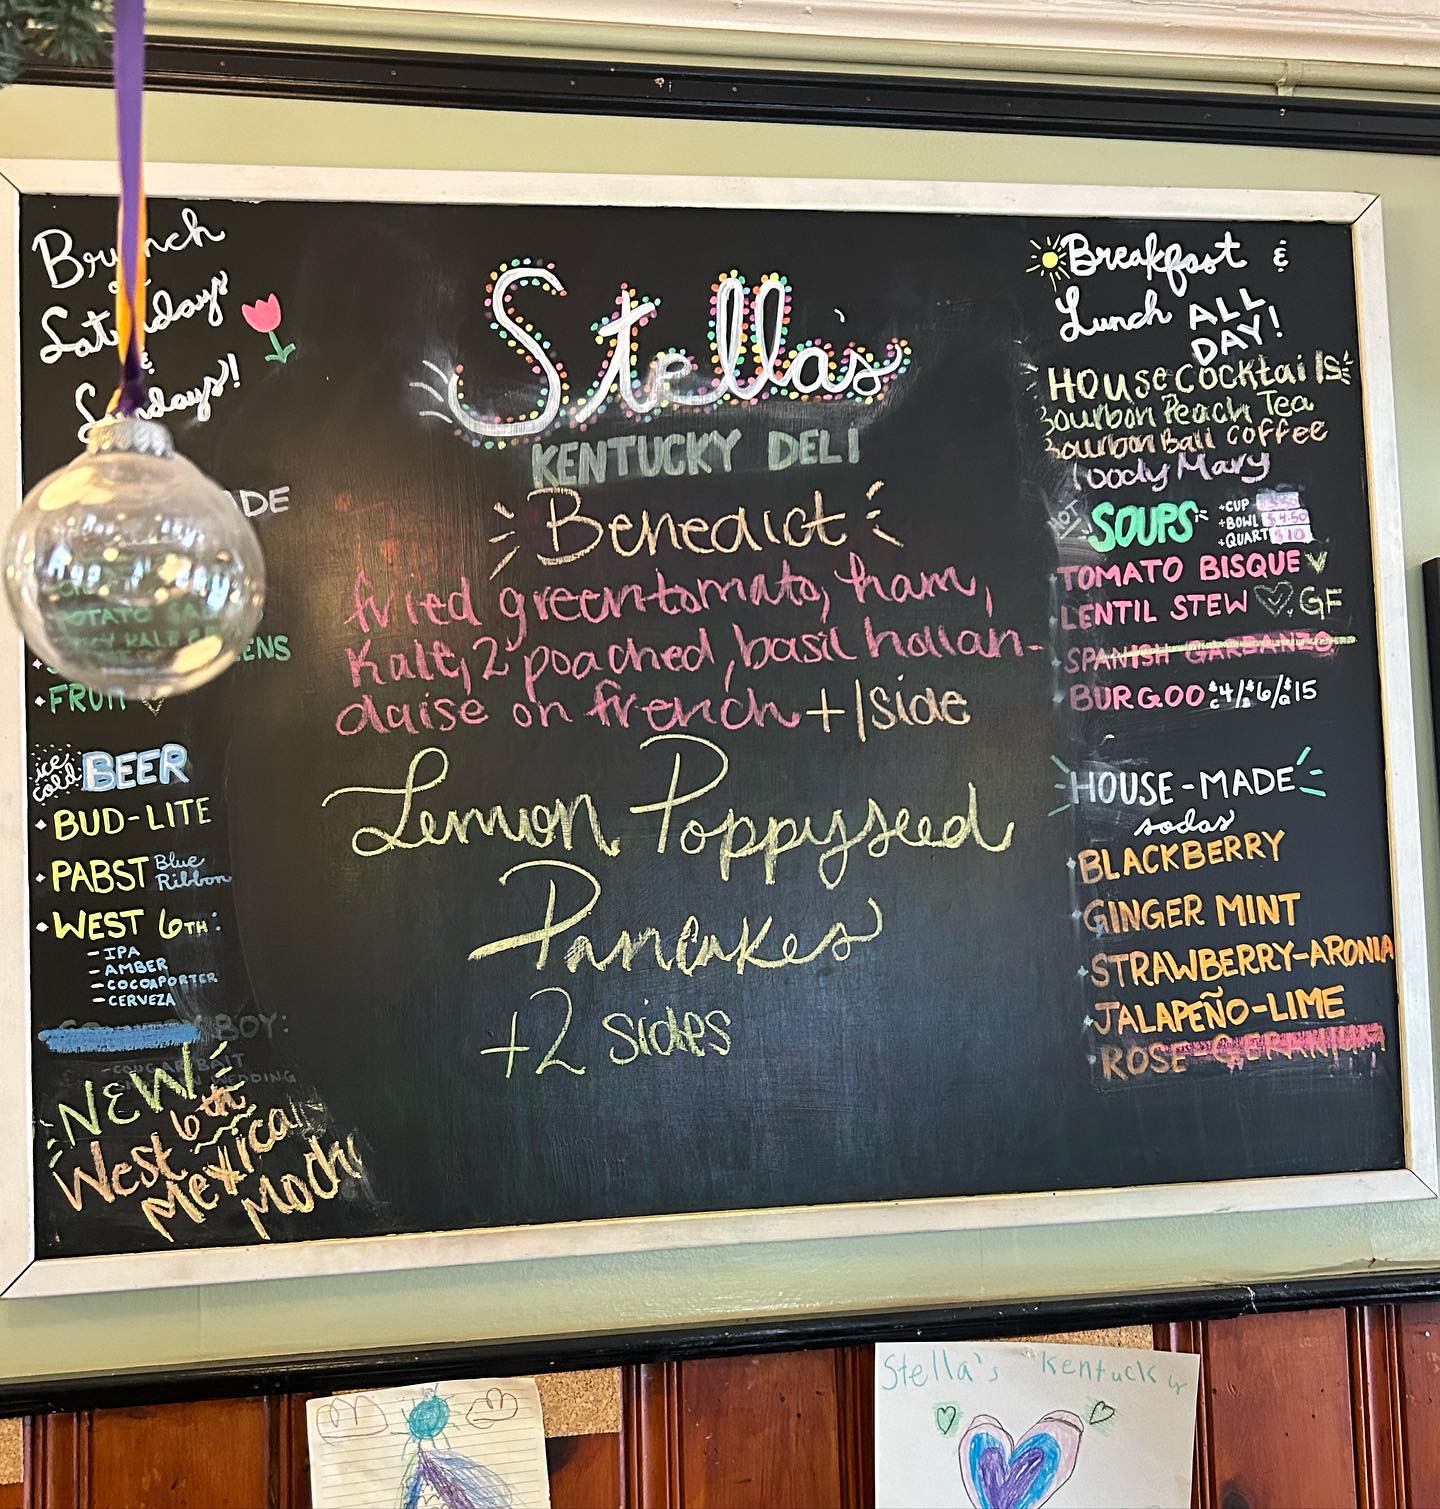 Brunch
Saturdays
&
Sundays!
Stella's
KENTUCKY DELI
Benedict
fried green tomato, ham,
Kale, 2 poached, basil hollan-
daise on french + 1 side
Lemon Poppyseed
Pancakes
+2 sides
POTATO
KALE GREENS
• FRUIT
ice cold BEER
• BUD-LITE
• PABST Blue Ribbon
• WEST 6TH:
- IPA
- AMBER
- COCOAPORTER
- CERVEZA
BOY:
- COUGAR BAIT
WEDDING
NEW
West 6th
Mexican
Mocha
Breakfast &
Lunch ALL DAY!
House Cocktails
Bourbon Peach Tea
Bourbon Ball Coffee
loody Mary
HOT SOUPS
+CUP
+BOWL $4.50
+QUART $10
TOMATO BISQUE V
LENTIL STEW GF
SPANISH GARBANZO
BURGOO $4/$6/$15
C B Q
HOUSE-MADE
sodas
• BLACKBERRY
• GINGER MINT
• STRAWBERRY-ARONIA
• JALAPEÑO-LIME
• ROSE-GERANIUM
Stella's Kentucky